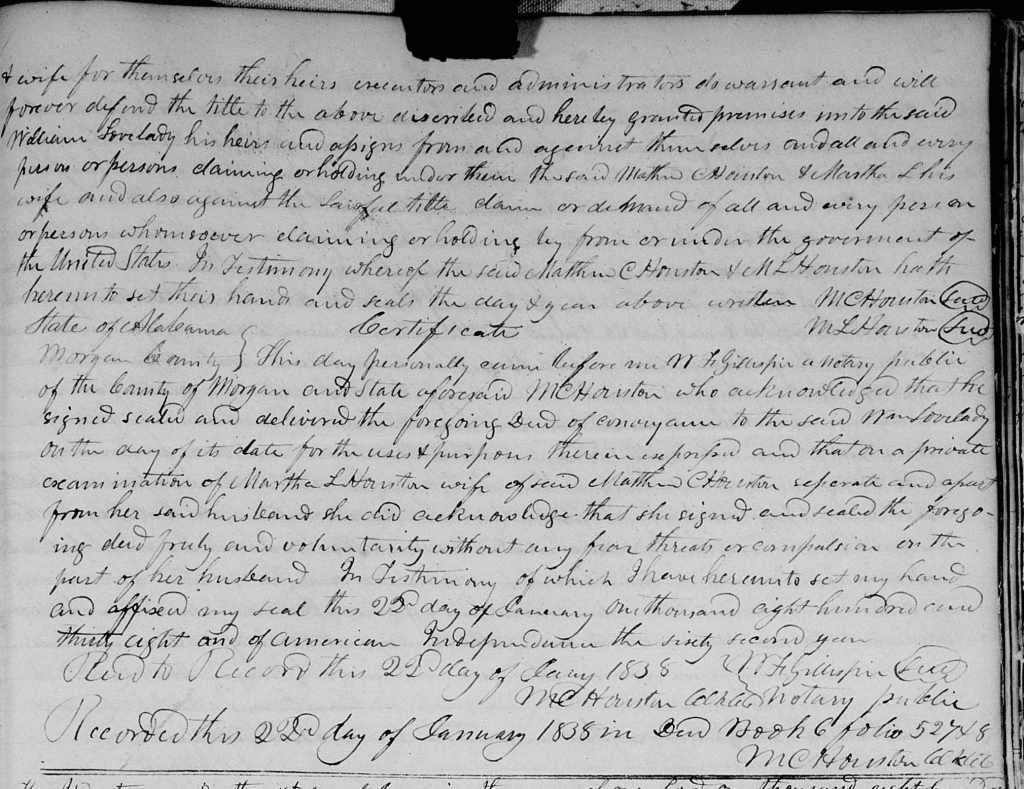 & wife for themselves their heirs executors and administrators do warrant and will
forever defend the title to the above discribed and hereby granted premises unto the said
William Lovelady his heirs and assigns from and against themselves and all and every
person or persons claiming or holding under them the said Mathew C Houston & Martha L his
wife and also against the lawful title claim or demand of all and every person
or persons whomsoever claiming or holding by from or under the goverment of
the United States In Testimony whereof the said Matthew C Houston & M L Houston hath
hereunto set their hands and seals the day & year above written M C Houston Seal
State of Alabama } Certificate M L Houston Seal
Morgan County } This day personally came before me W F Gillespie a notary public
of the County of Morgan and State aforesaid M C Houston who acknowledged that he
signed sealed and delivered the foregoing Deed of conveyance to the said Wm Lovelady
on the day of its date for the uses & purposes therein expressed and that on a private
examination of Martha L Houston wife of said Matthew C Houston seperate and apart
from her said husband she did acknowledge that she signed and sealed the forego-
ing deed freely and voluntarily without any fear threats or compulsion on the
part of her husband In Testimony of which I have hereunto set my hand
and affixed my seal this 22d day of January One thousand eight hundred and
thirty eight and of American Independence the sixty second year
Recd to Record this 22d day of Jany 1838 W F Gillespie Seal
M C Houston Notary public
Recorded this 22d day of January 1838 in Deed Book 6 folio 527 & 8
M C Houston